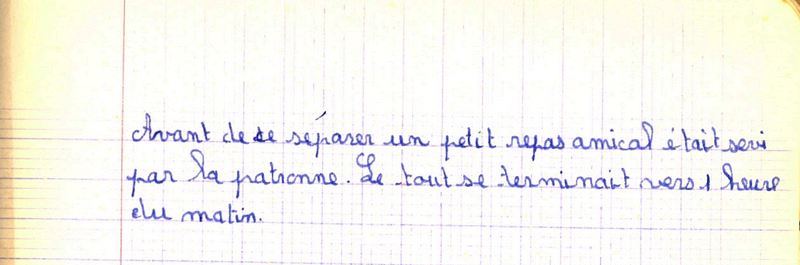 Avant de se séparer un petit repas amical était servi
par la patronne. Le tout se terminait vers 1 heure
du matin.